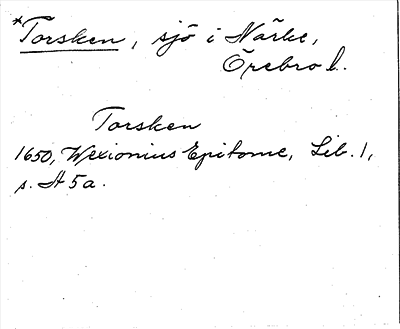 *Torsken, sjö i Närke,
Örebro l.
Torsken
1650, Wexionius Epitome, Lib. 1,
s. A 5a.